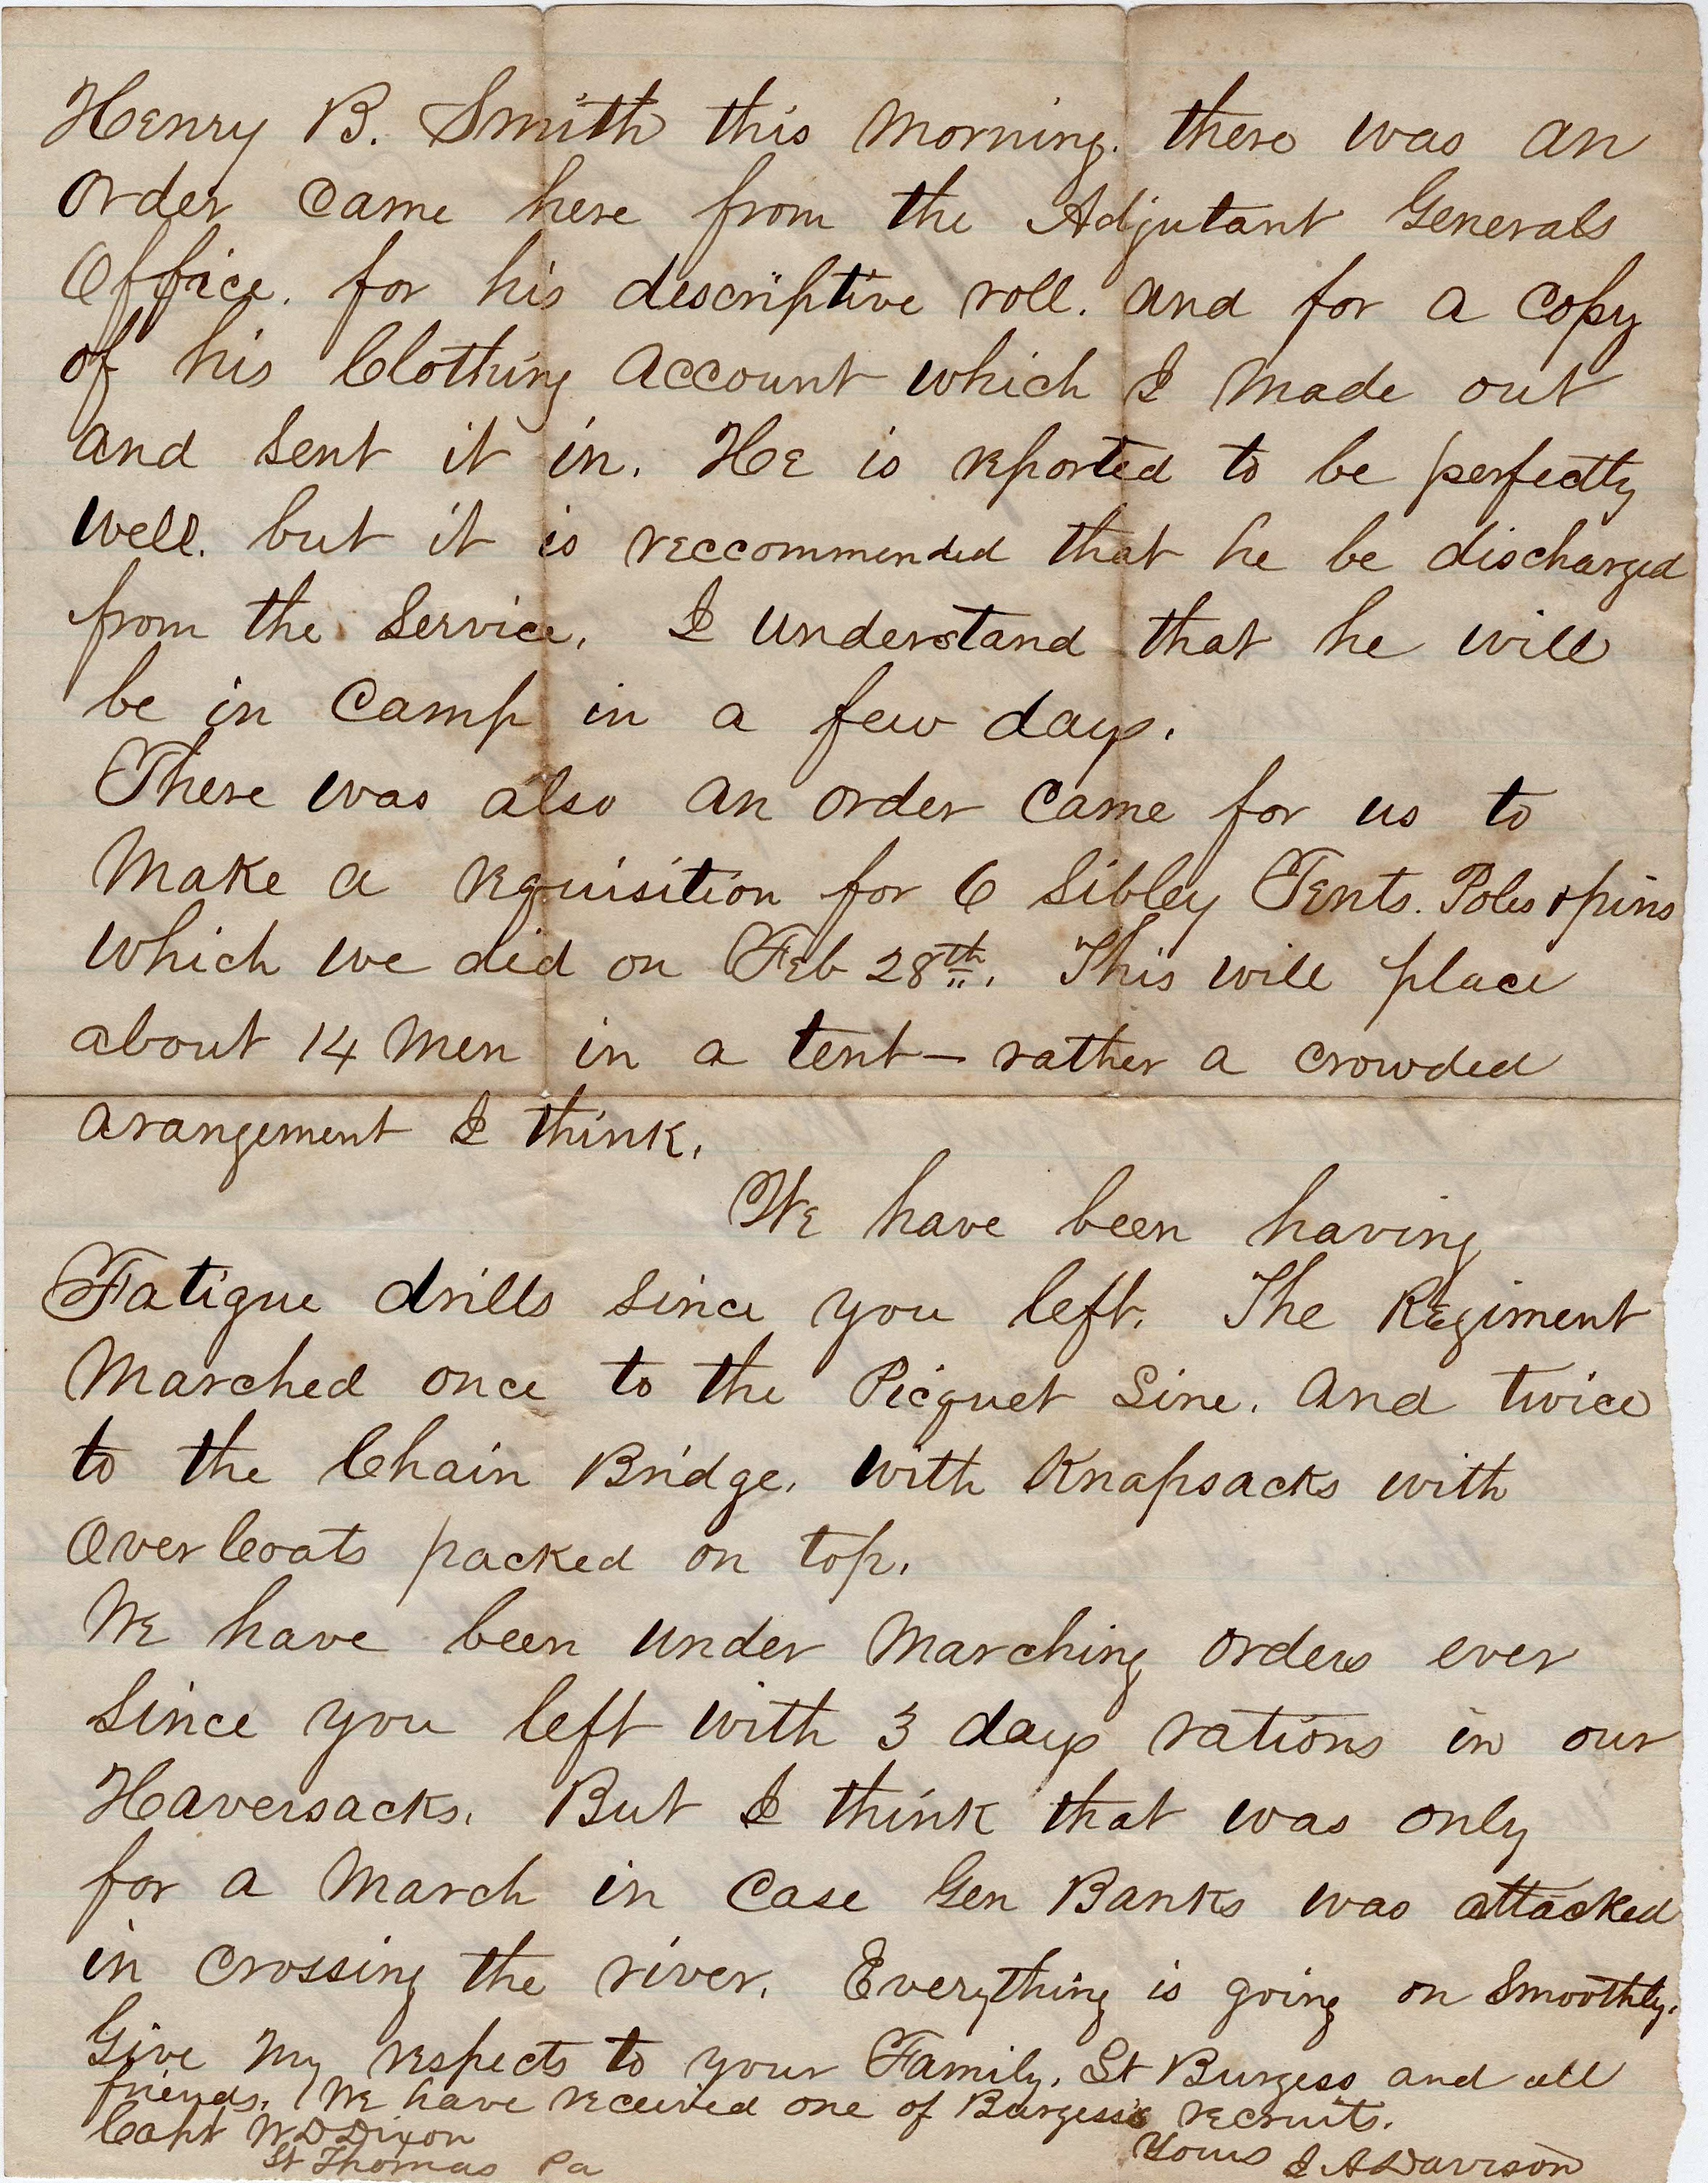 Henry B. Smith this morning. there was an
order came here from the Adjutant Generals
Office. for his descriptive roll. and for a copy
of his Clothing account which I made out
and sent it in. He is reported to be perfectly
well. but it is reccommended that he be discharged
from the Service. I understand that he will
be in Camp in a few days.
There was also an order came for us to
make a requisition for 6 Sibley Tents. Poles & pins
which we did on Feb 28th. This will place
about 14 men in a tent — rather a crowded
arangement I think.
We have been having
Fatigue drills since you left. The Regiment
marched once to the Picquet Line. and twice
to the Chain Bridge. with Knapsacks with
Over Coats packed on top.
We have been under marching orders ever
since you left with 3 days rations in our
Haversacks. But I think that was only
for a march in case Gen Banks was attacked
in crossing the river. Everything is going on Smoothly.
Give my respects to your Family. Lt Burgess and all
friends. We have received one of Burgess's recruits.
Capt W D Dixon
St Thomas Pa
Yours J A Davison